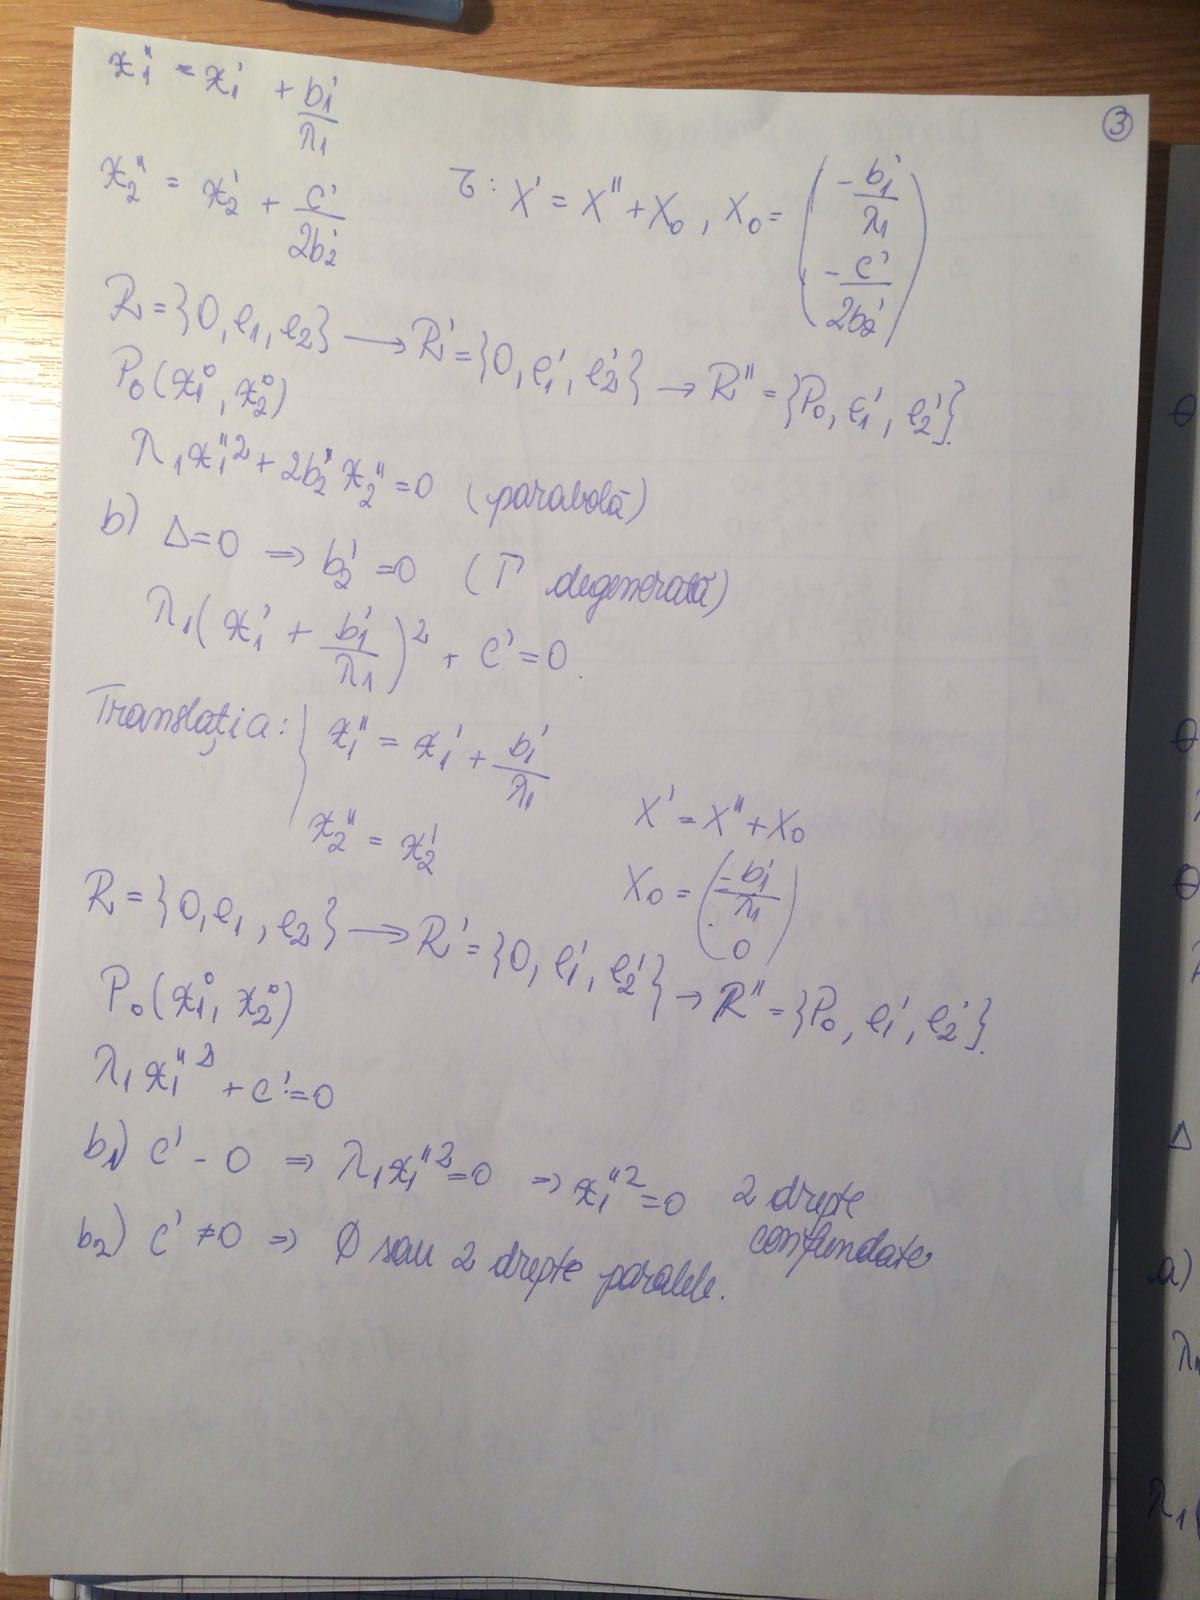 ③
x₁'' = x₁' + b₁'/λ₁
x₂'' = x₂' + c'/2b₂'
τ: X' = X'' + X₀, X₀ = (-b₁'/λ₁ -c'/2b₂')
R = {0, e₁, e₂} → R' = {0, e₁', e₂'} → R'' = {P₀, e₁', e₂'}.
P₀(x₁⁰, x₂⁰)
λ₁x₁''² + 2b₂'x₂'' = 0 (parabolă)
b) Δ=0 ⇒ b₂' = 0 (Γ degenerată)
λ₁(x₁' + b₁'/λ₁)² + c' = 0.
Translația: { x₁'' = x₁' + b₁'/λ₁
x₂'' = x₂'
X' = X'' + X₀
X₀ = (-b₁'/λ₁ 0)
R = {0, e₁, e₂} → R' = {0, e₁', e₂'} → R'' = {P₀, e₁', e₂'}.
P₀(x₁⁰, x₂⁰)
λ₁x₁''² + c' = 0
b₁) c' - 0 ⇒ λ₁x₁''² = 0 ⇒ x₁''² = 0 2 drepte confundate
b₂) c' ≠ 0 ⇒ ∅ sau 2 drepte paralele.
θ
θ
λ
θ
Δ
a)
λ₁
λ₁(